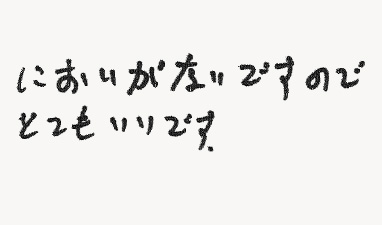 においがないですので
とてもいいです.